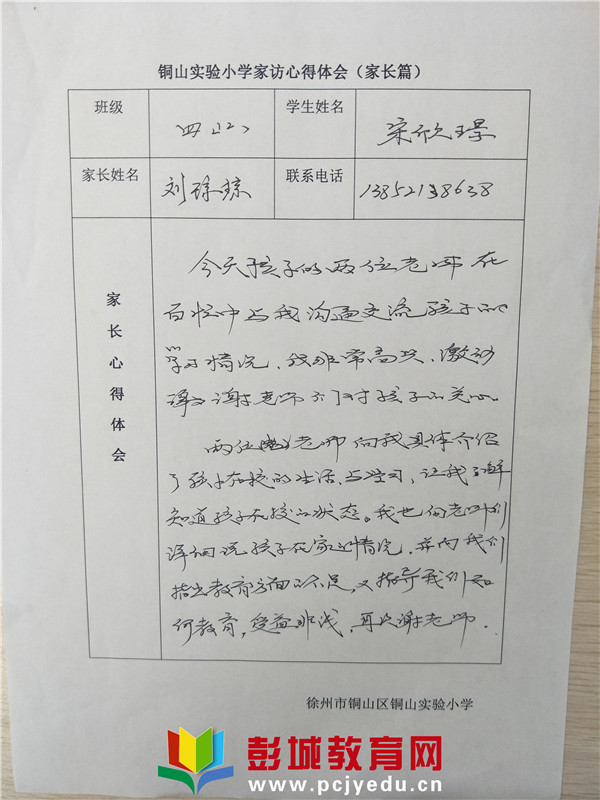 铜山实验小学家访心得体会（家长篇）
班级 四 学生姓名 宋欣璟
家长姓名 刘 琼 联系电话
家长心得体会
今天孩子的两位老师在
百忙中与我沟通交流孩子的
学习情况，我非常高兴、激动
谢老师们对孩子的关心。
两位老师向我具体介绍
了孩子在校的生活与学习，让我了解
知道孩子在校的状态。我也向老师们
详细说孩子在家的情况，并向我们
指出教育方面的不足，又指导我们如
何教育，受益非浅，再次谢老师.
徐州市铜山区铜山实验小学
彭城教育网
www.pcjyedu.cn